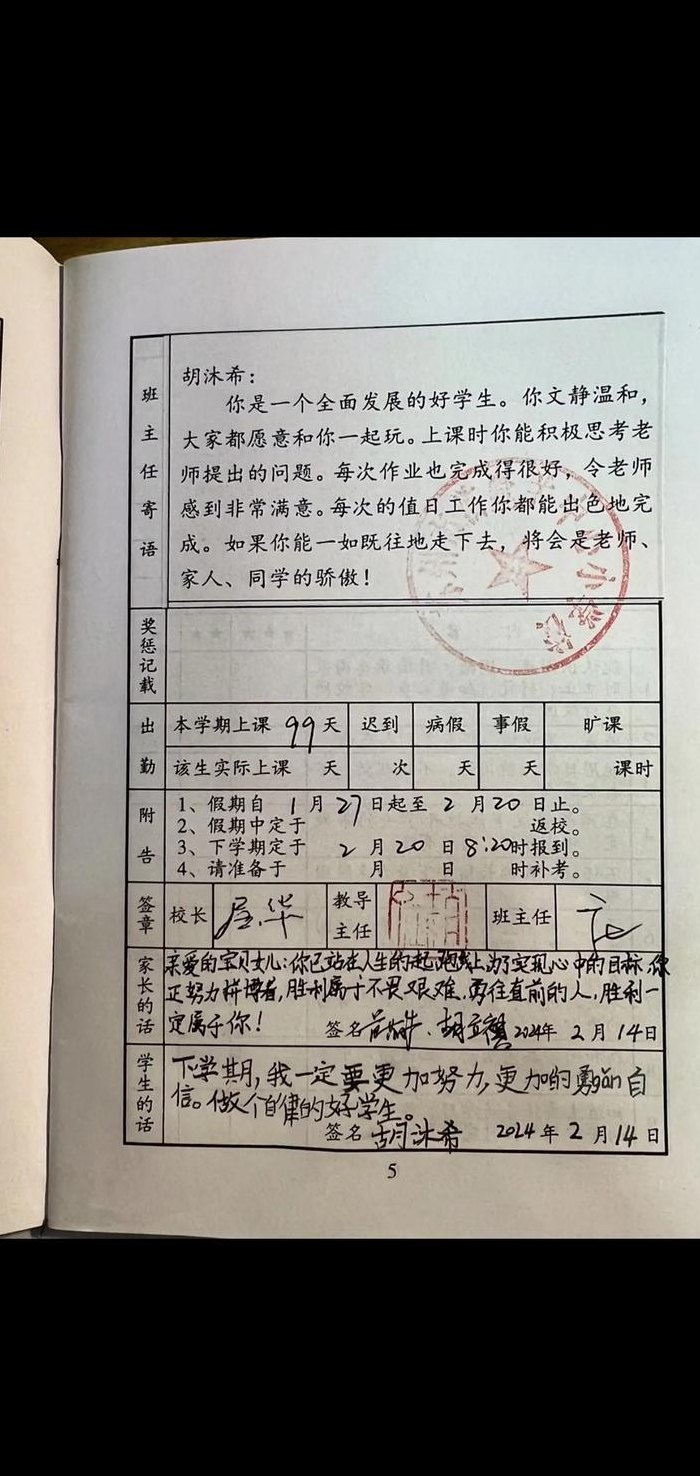 班主任寄语
胡沐希：
你是一个全面发展的好学生。你文静温和，
大家都愿意和你一起玩。上课时你能积极思考老
师提出的问题。每次作业也完成得很好，令老师
感到非常满意。每次的值日工作你都能出色地完
成。如果你能一如既往地走下去，将会是老师、
家人、同学的骄傲！
奖惩记载
出勤
本学期上课 99 天 迟到 病假 事假 旷课
该生实际上课 天 次 天 天 课时
附告
1、假期自 1 月 27 日起至 2 月 20 日止。
2、假期中定于 返校。
3、下学期定于 2 月 20 日 8:20 时报到。
4、请准备于 月 日 时补考。
签章 校长 教导主任 班主任
家长的话
亲爱的宝贝女儿：你已站在人生的起跑线上，为了实现心中的目标，你
正努力拼博着，胜利属于不畏艰难，勇往直前的人，胜利一
定属于你！
签名 2024 年 2 月 14 日
学生的话
下学期，我一定要更加努力，更加的勇gǎn自
信。做个自律的好学生。
签名 胡沐希 2024 年 2 月 14 日
5